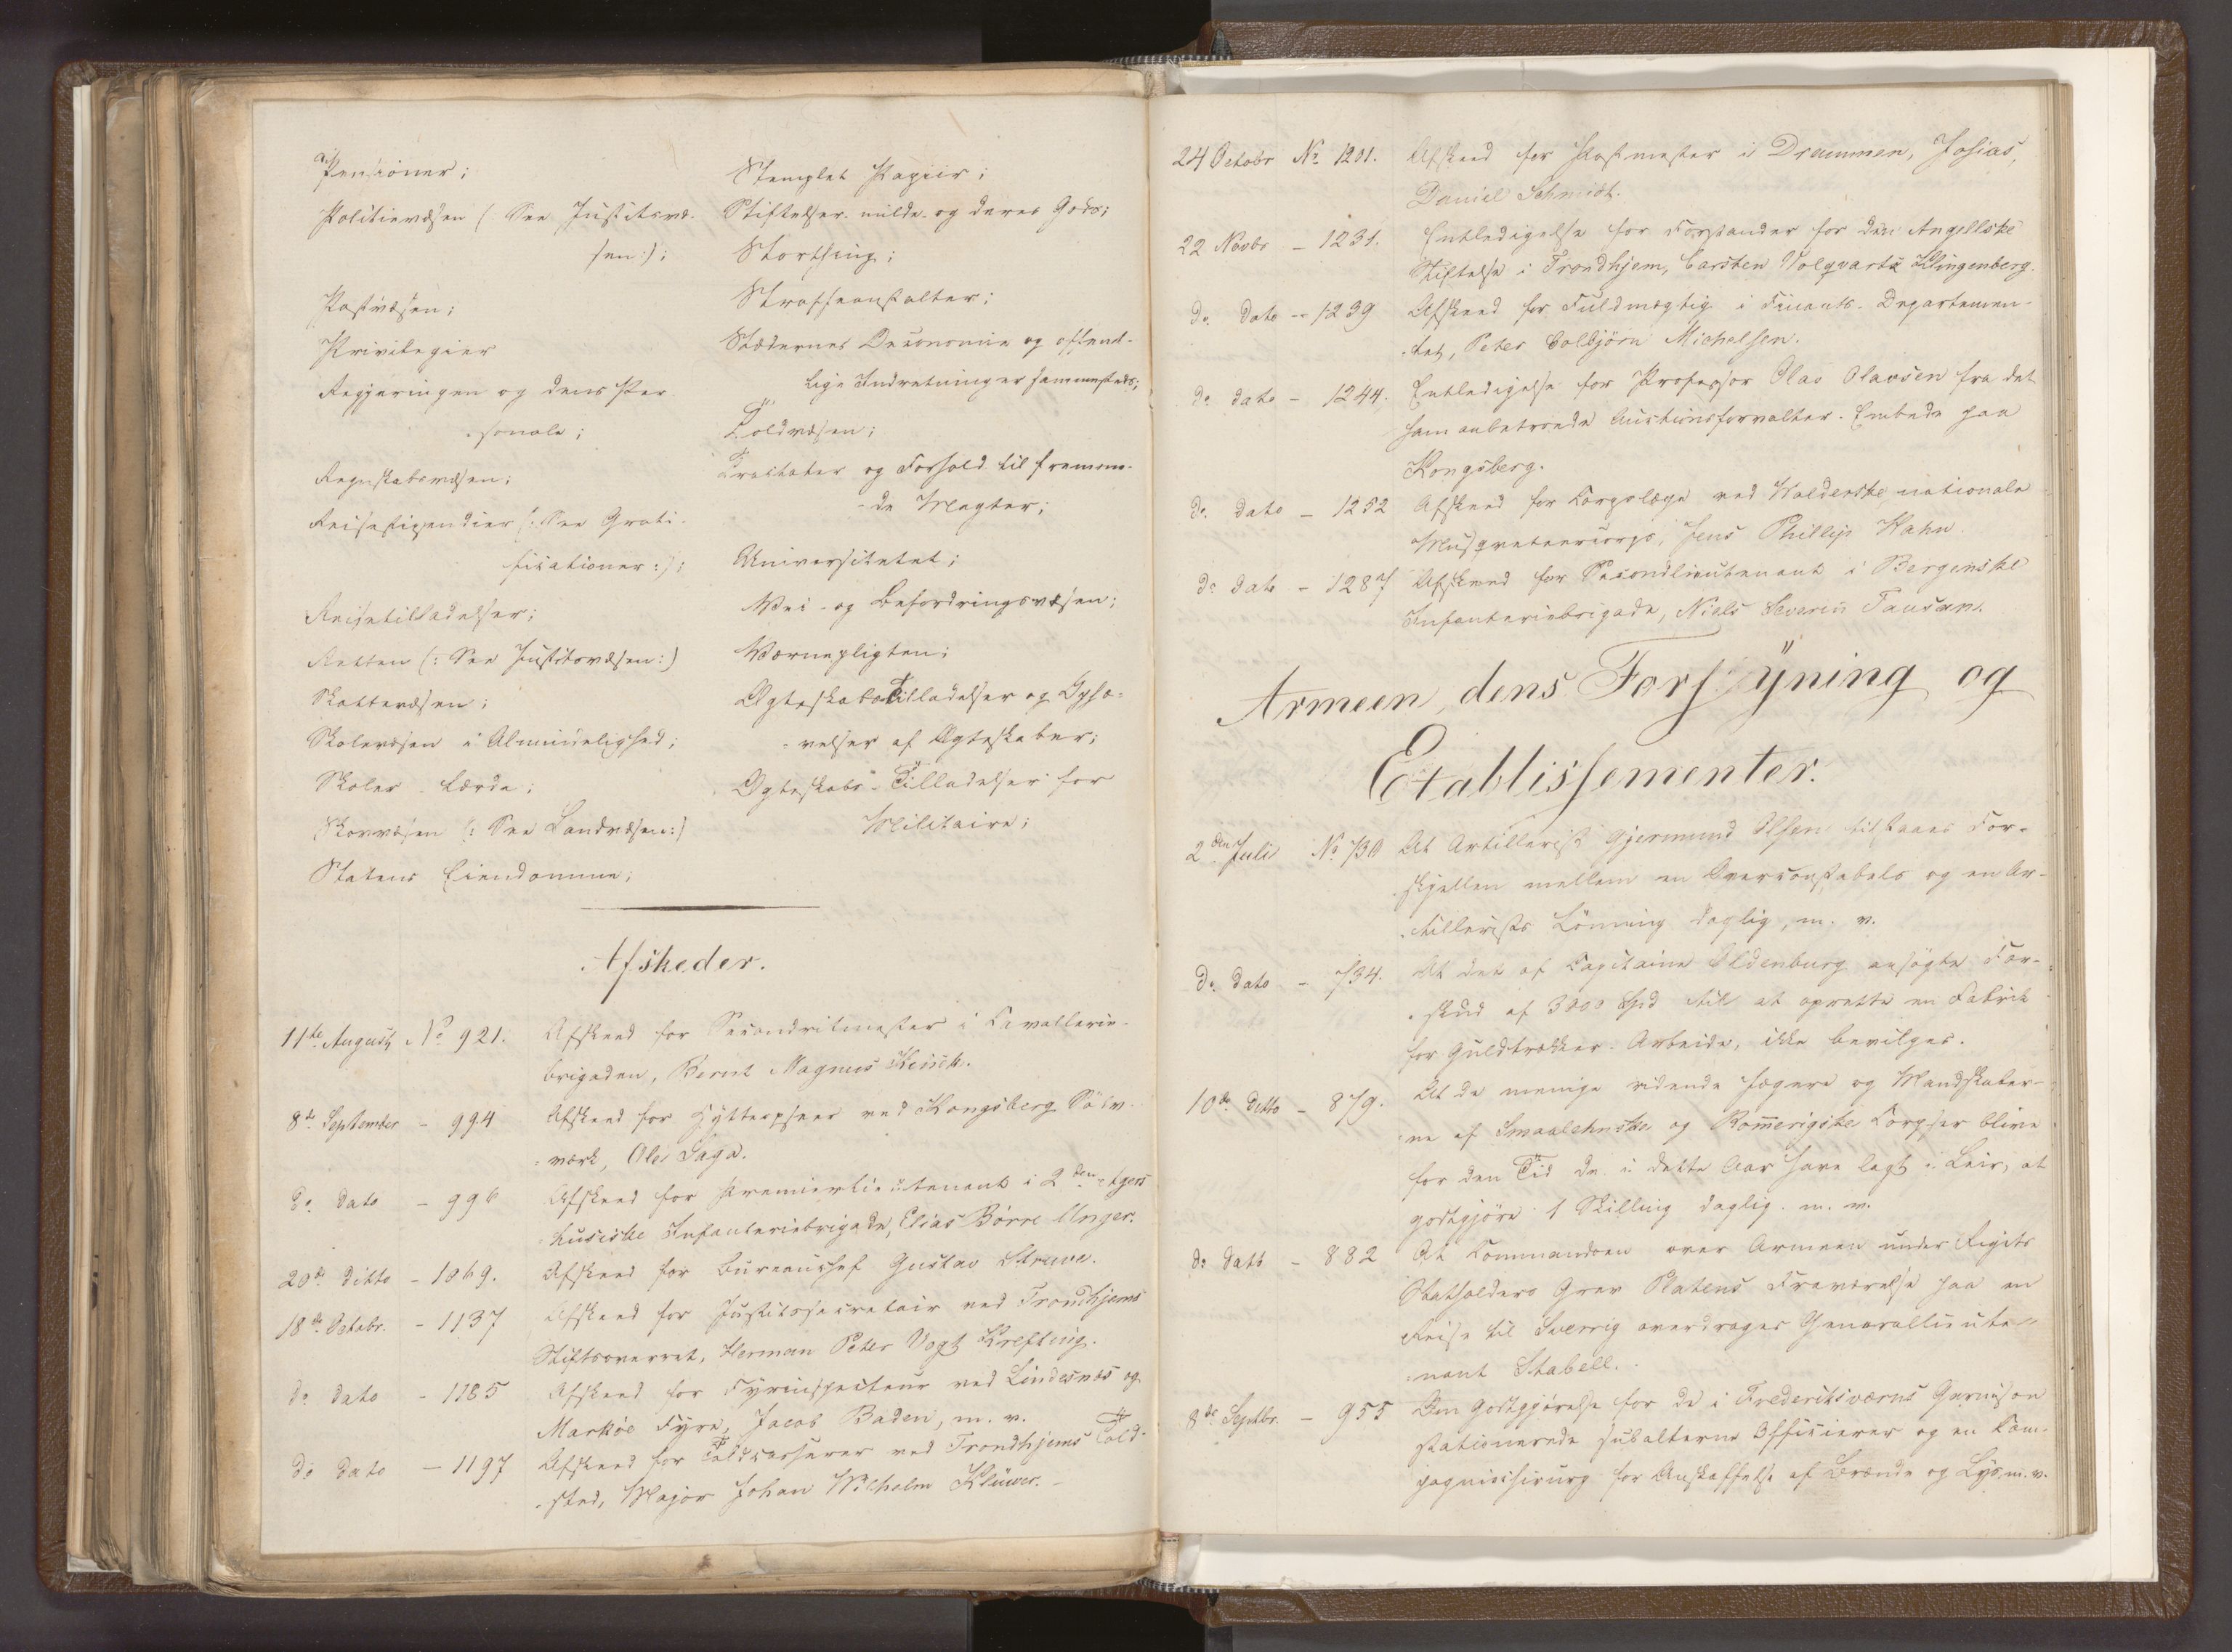 Pensioner;
Politievæsen (: See Justitsvæ-
sen:);
Postvæsen;
Privilegier
Regjeringen og dens Per
-sonale;
Regnskabsvæsen;
Reisestipendier (: See Grati-
ficationer:);
Reisetilladelser;
Retten (: See Justitsvæsen:)
Skattevæsen;
Skolevæsen i Almindelighed;
Skoler lærde;
Skovvæsen (: See Landvæsen:)
Statens Eiendomme;
Stemplet Papiir;
Stiftelser milde og deres Gods;
Storthing;
Straffeanstalter;
Stædernes Oeconomie og offent-
lige Indretninger sammesteds;
Toldvæsen;
Tractater og Forhold til fremme-
-de Magter;
Universitetet;
Vei- og Befordringsvæsen;
Værnepligten;
Ægteskabs Tilladelser og Ophæ-
-velser af Ægteskaber;
Ægteskabs-Tilladelser for
Militaire;
Afskeder.
11te August No 921. Afskeed for Secondritmester i Cavallerie-
brigaden, Bernt Magnus
8de September - 994 Afskeed for Hytteopseer ved Kongsberg Sölv-
-værk, Ole Saga.
do dato - 996 Afskeed for Premierlieutenant i 2den Agers
-husiske Infanteriebrigade, Elias Börre Unger.
20de ditto - 1069. Afskeed for Bureauchef Gustav Struve.
18de Octobr. - 1137 Afskeed for Justitssecretair ved Trondhjems
Stiftsoverret, Herman Peter Vogt Krefting.
do dato - 1185 Afskeed for Fyrinspecteur ved Lindesnæs og
Markøe Fyre, Jacob Baden, m. v.
do dato - 1197 Afskeed for Toldcasserer ved Trondhjems Told-
-sted, Major Johan Wilhelm Klüwer.
24 Octobr No 1201. Afskeed for Postmester i Drammen, Josias
Daniel Schmidt.
22 Novbr - 1231. Entledigelse for Forstander for den Angellske
Stiftelse i Trondhjem, Carsten Volqvartz Klingenberg.
do dato - 1239 Afskeed for Fuldmægtig i Finants-Departemen-
-tet, Peter Colbjörn Michelsen.
do dato - 1244. Entledigelse for Professor Olav Olavsen fra det
ham anbetroede Auctionsforvalter-Embede paa
Kongsberg.
do dato - 1252 Afskeed for Corpslæge ved Walderske nationale
Musqueteercorps, Jens Phillip Hahn.
do dato - 1287 Afskeed for Secondlieutenant i Bergenske
Infanteriebrigade, Niels Severin Tausan.
Armeen, dens Forsÿning og
Etablissementer.
2den Juli No 730 At Artillerist Gjermund Olsen tilstaaes For-
skjellen mellem en Overconstabels og en Ar-
-tillerists Lönning daglig, m. v.
do dato - 734. At det af Capitaine Oldenburg ansögte For-
-skud af 3000 Spd til at oprette en Fabrik
for Guldtrækker-Arbeide, ikke bevilges.
10de ditto - 879. At de menige ridende Jægere og Mandskaber-
-ne af Smaalehnske og Romerigske Corpser blive
for den Tid de i dette Aar have lagt i Leir, at
godtgjöre 1 Skilling daglig. m. v.
do dato - 882 At Commandoen over Armeen under Rigets
Statholders Grev Platens Fraværelse paa en
Reise til Sverrig overdrages Generallieute-
-nant Stabell.
8de Septbr. - 955 Om Godtgjörelse for de i Frederiksværns Garnison
stationerede subalterne Officierer og en Com-
pagniechirurg for Anskaffelse af Brænde og Lys, m. v.